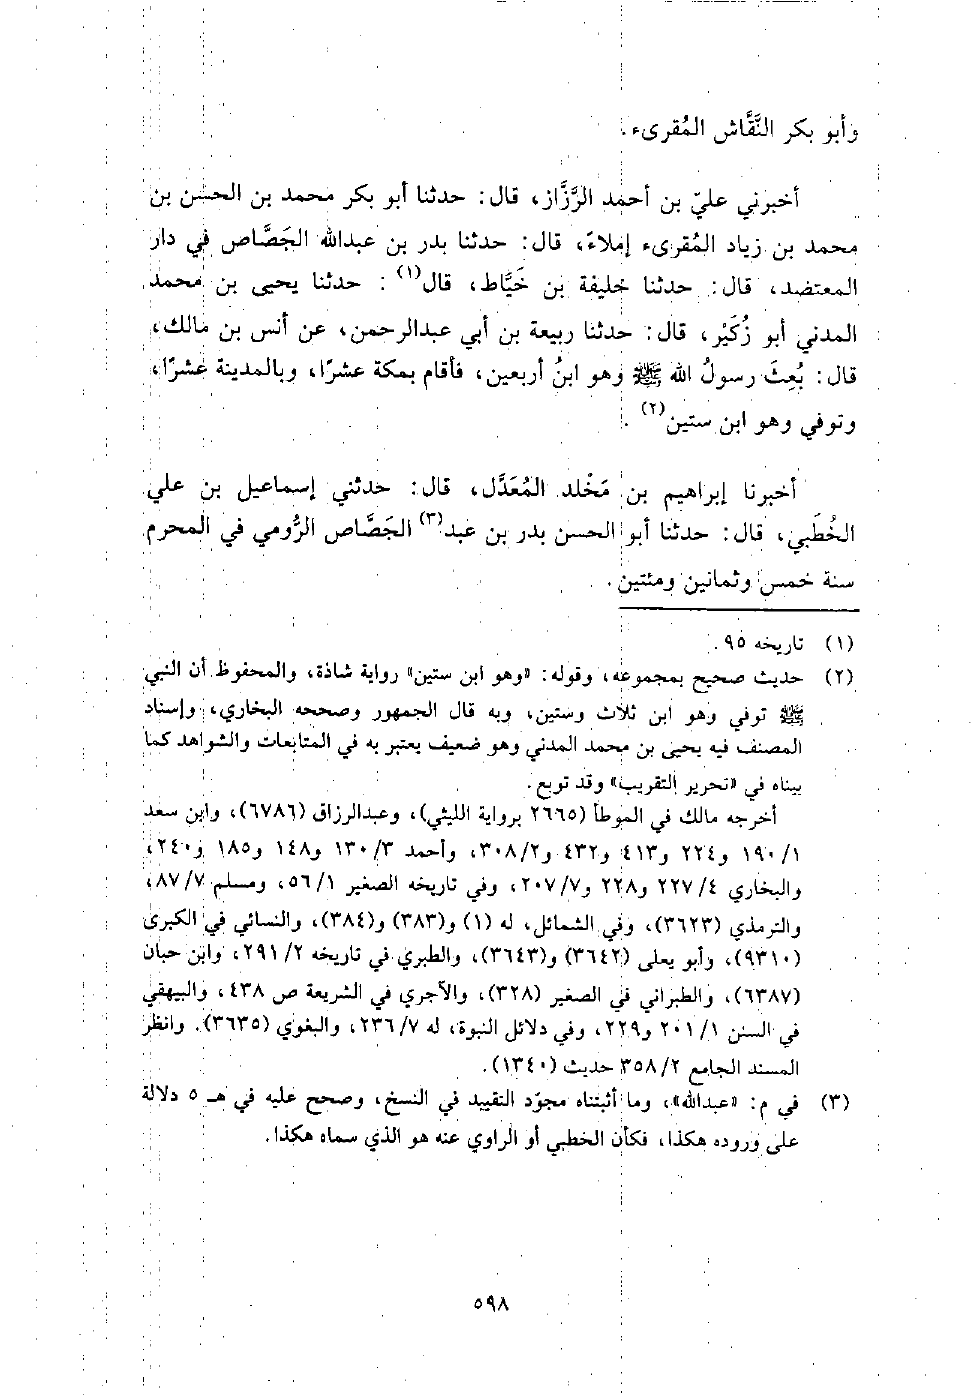 وأبو بكر النَّقَّاش المُقرىء.
أخبرني عليّ بن أحمد الرَّزَّاز، قال: حدثنا أبو بكر محمد بن الحسن بن
محمد بن زياد المُقرىء إملاءً، قال: حدثنا بدر بن عبدالله الجَصَّاص في دار
المعتضد، قال: حدثنا خليفة بن خَيَّاط، قال(١): حدثنا يحيى بن محمد
المدني أبو زُكَيْر، قال: حدثنا ربيعة بن أبي عبدالرحمن، عن أنس بن مالك،
قال: بُعِثَ رسولُ الله ﷺ وهو ابنُ أربعين، فأقام بمكة عشرًا، وبالمدينة عشرًا،
وتوفي وهو ابن ستين(٢).
أخبرنا إبراهيم بن مَخْلد المُعَدَّل، قال: حدثني إسماعيل بن علي
الخُطَبي، قال: حدثنا أبو الحسن بدر بن عبد(٣) الجَصَّاص الرُّومي في المحرم
سنة خمس وثمانين ومئتين.
(١) تاريخه ٩٥.
(٢) حديث صحيح بمجموعه، وقوله: «وهو ابن ستين» رواية شاذة، والمحفوظ أن النبي
ﷺ توفي وهو ابن ثلاث وستين، وبه قال الجمهور وصححه البخاري، وإسناد
المصنف فيه يحيى بن محمد المدني وهو ضعيف يعتبر به في المتابعات والشواهد كما
بيناه في «تحرير التقريب» وقد توبع.
أخرجه مالك في الموطأ (٢٦٦٥ برواية الليثي)، وعبدالرزاق (٦٧٨٦)، وابن سعد
١/ ١٩٠ و٢٢٤ و٤١٣ و٤٣٢ و٢/ ٣٠٨، وأحمد ٣/ ١٣٠ و١٤٨ و١٨٥ و٢٤٠،
والبخاري ٤/ ٢٢٧ و٢٢٨ و٧/ ٢٠٧، وفي تاريخه الصغير ١/ ٥٦، ومسلم ٧/ ٨٧،
والترمذي (٣٦٢٣)، وفي الشمائل، له (١) و(٣٨٣) و(٣٨٤)، والنسائي في الكبرى
(٩٣١٠)، وأبو يعلى (٣٦٤٢) و(٣٦٤٣)، والطبري في تاريخه ٢/ ٢٩١، وابن حبان
(٦٣٨٧)، والطبراني في الصغير (٣٢٨)، والآجري في الشريعة ص ٤٣٨، والبيهقي
في السنن ١/ ٢٠١ و٢٢٩، وفي دلائل النبوة، له ٧/ ٢٣٦، والبغوي (٣٦٣٥). وانظر
المسند الجامع ٢/ ٣٥٨ حديث (١٣٤٠).
(٣) في م: «عبدالله»، وما أثبتناه مجوّد التقييد في النسخ، وصحح عليه في هـ ٥ دلالة
على وروده هكذا، فكأن الخطبي أو الراوي عنه هو الذي سماه هكذا.
٥٩٨